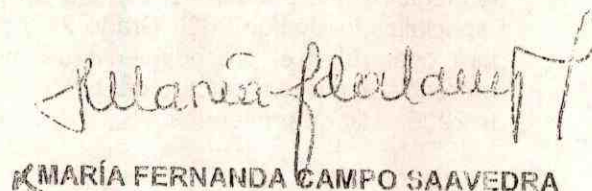 María
MARÍA FERNANDA CAMPO SAAVEDRA